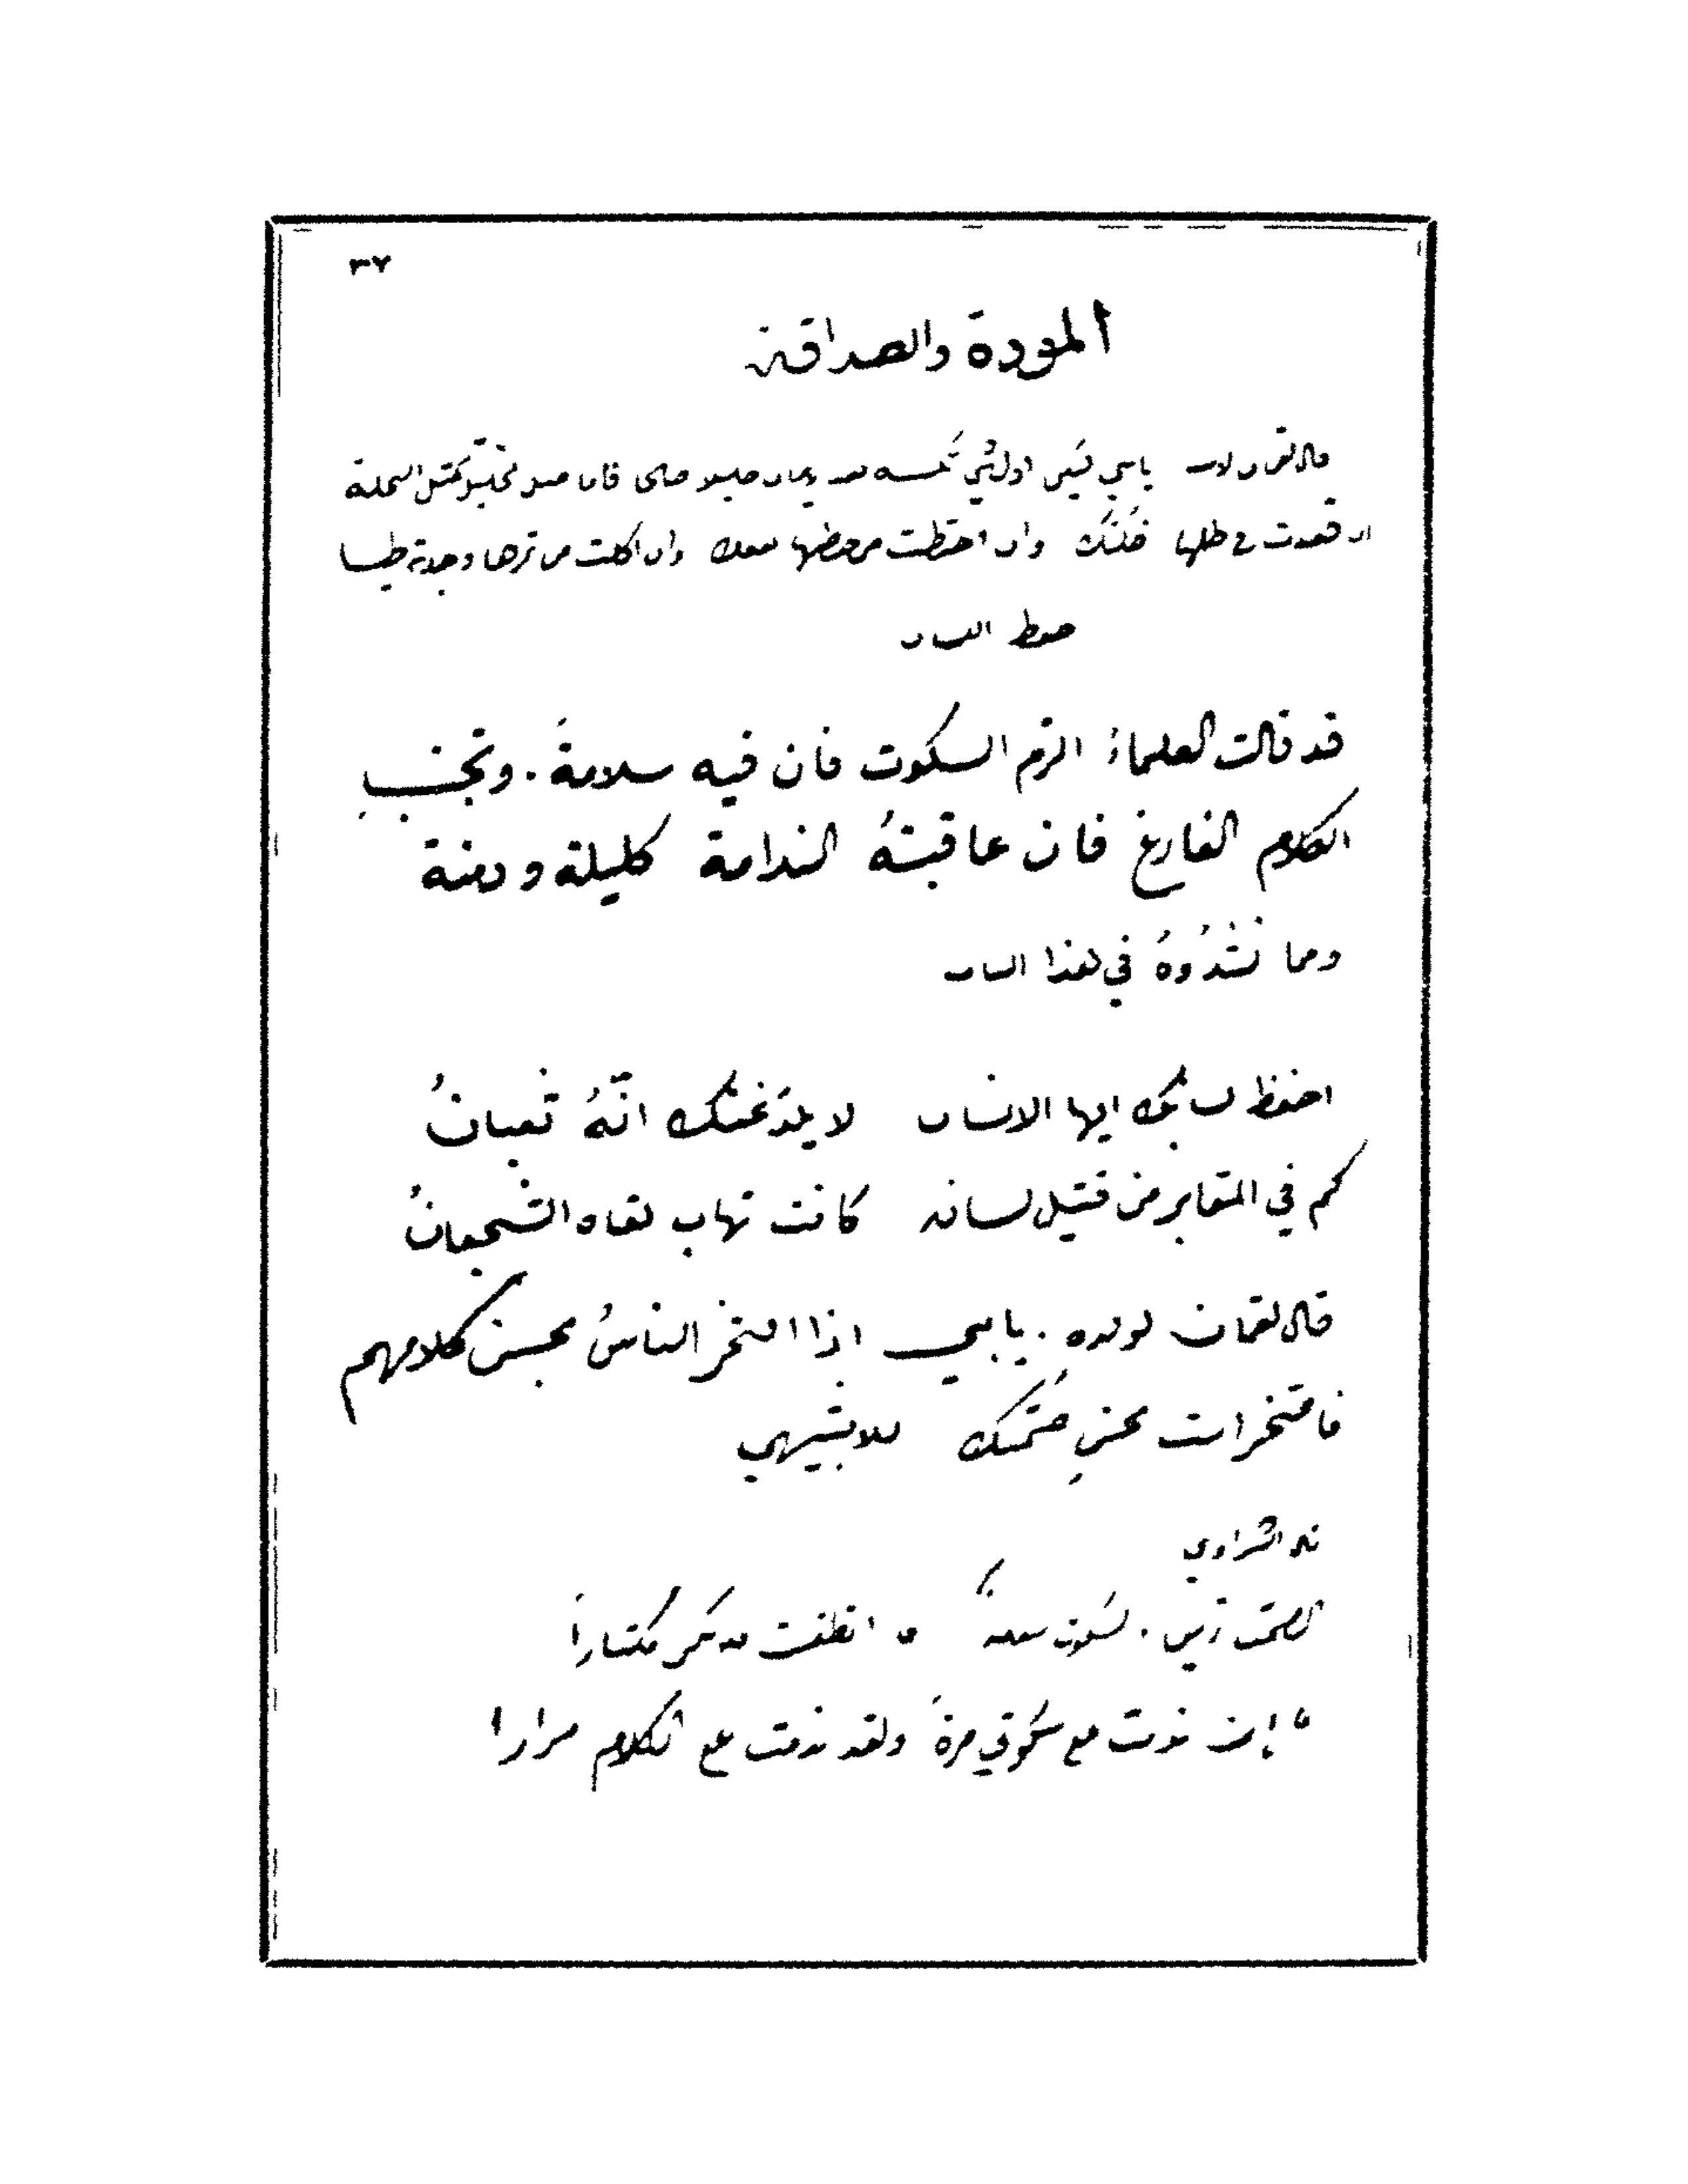 ٣٧
المودة والصداقة
قال لقمان لابنه يا بني ليكن اول شي تكسبه بعد الايمان خليلا صالحا فان مثل الخليل كمثل النخلة
ان قعدت في ظلها ظلتك وان احتطبت من حطبها نفعك وان اكلت من ثمرها وجدته طيبا
حفظ اللسان
قد قالت العلماءُ الزم السكوت فان فيه سلامةً . وتجنب
الكلام الفارغ فان عاقبتهُ الندامة كليلة ودمنة
ومما نشدُوهُ في هذا الباب
احفظ لسانك ايها الانسان لا يلدغنّك انّهُ ثعبانُ
كم في المقابر من قتيل لسانه كانت تهاب لقاه الشجعانُ
قال لقمان لولده . يا بني اذا افتخر الناسُ بحسن كلامهم
فافتخر انت بحسنِ صُمتك للابشيهي
الشبراوي
الصمت زين . السكوت سلامة فاذا نطقت فلا تكن مكثاراً
ما إن ندمت على سكوتي مرةً ولقد ندمت على الكلام مرارا